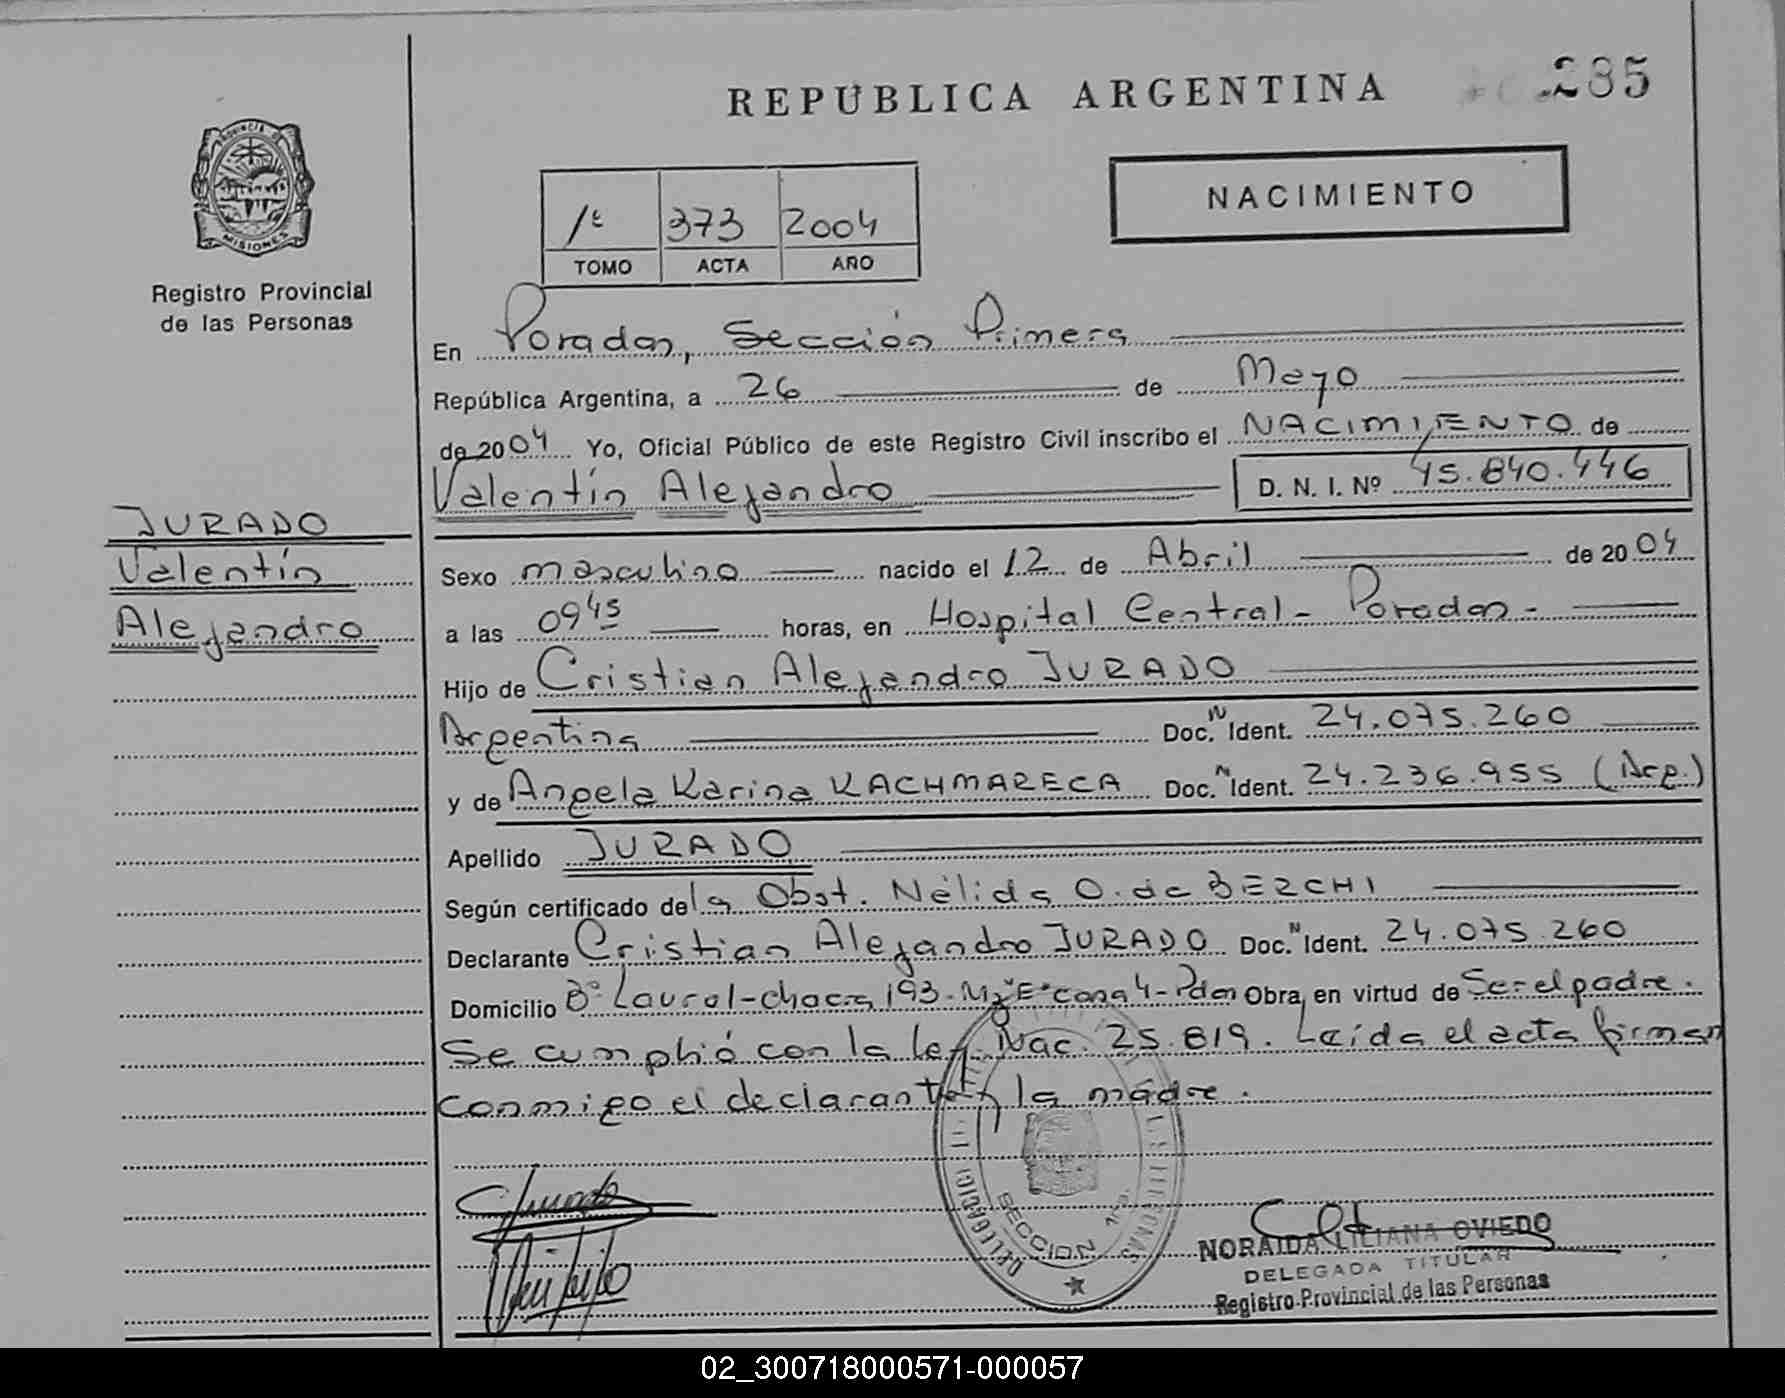 REPUBLICA ARGENTINA
235
PROVINCIA DE
MISIONES
Registro Provincial
de las Personas
1ᵗ 373 2004
TOMO ACTA AÑO
NACIMIENTO
En Posadas, Sección Primera
República Argentina, a 26 de Mayo
de 2004 Yo, Oficial Público de este Registro Civil inscribo el NACIMIENTO de
Valentín Alejandro D. N. I. Nº 45.840.446
JURADO
Valentín
Alejandro
Sexo masculino nacido el 12 de Abril de 2004
a las 09 45 horas, en Hospital Central - Posadas -
Hijo de Cristian Alejandro JURADO
Argentina Doc. N Ident. 24.075.260
y de Angela Karina KACHMARECA Doc. N Ident. 24.236.955 (Arg.)
Apellido JURADO
Según certificado de la Obst. Nélida O. de BERCHI
Declarante Cristian Alejandro JURADO Doc. N Ident. 24.075.260
Domicilio Bº Laurel - chacra 193 - Mz "E" casa 4 - Pdas Obra, en virtud de Ser el padre.
Se cumplió con la ley Nac. 25.819. Leída el acta firman
conmigo el declarante y la madre.
DELEGACION
SECCION 1ra.
NORAIDA LILIANA OVIEDO
DELEGADA TITULAR
Registro Provincial de las Personas
02_300718000571-000057